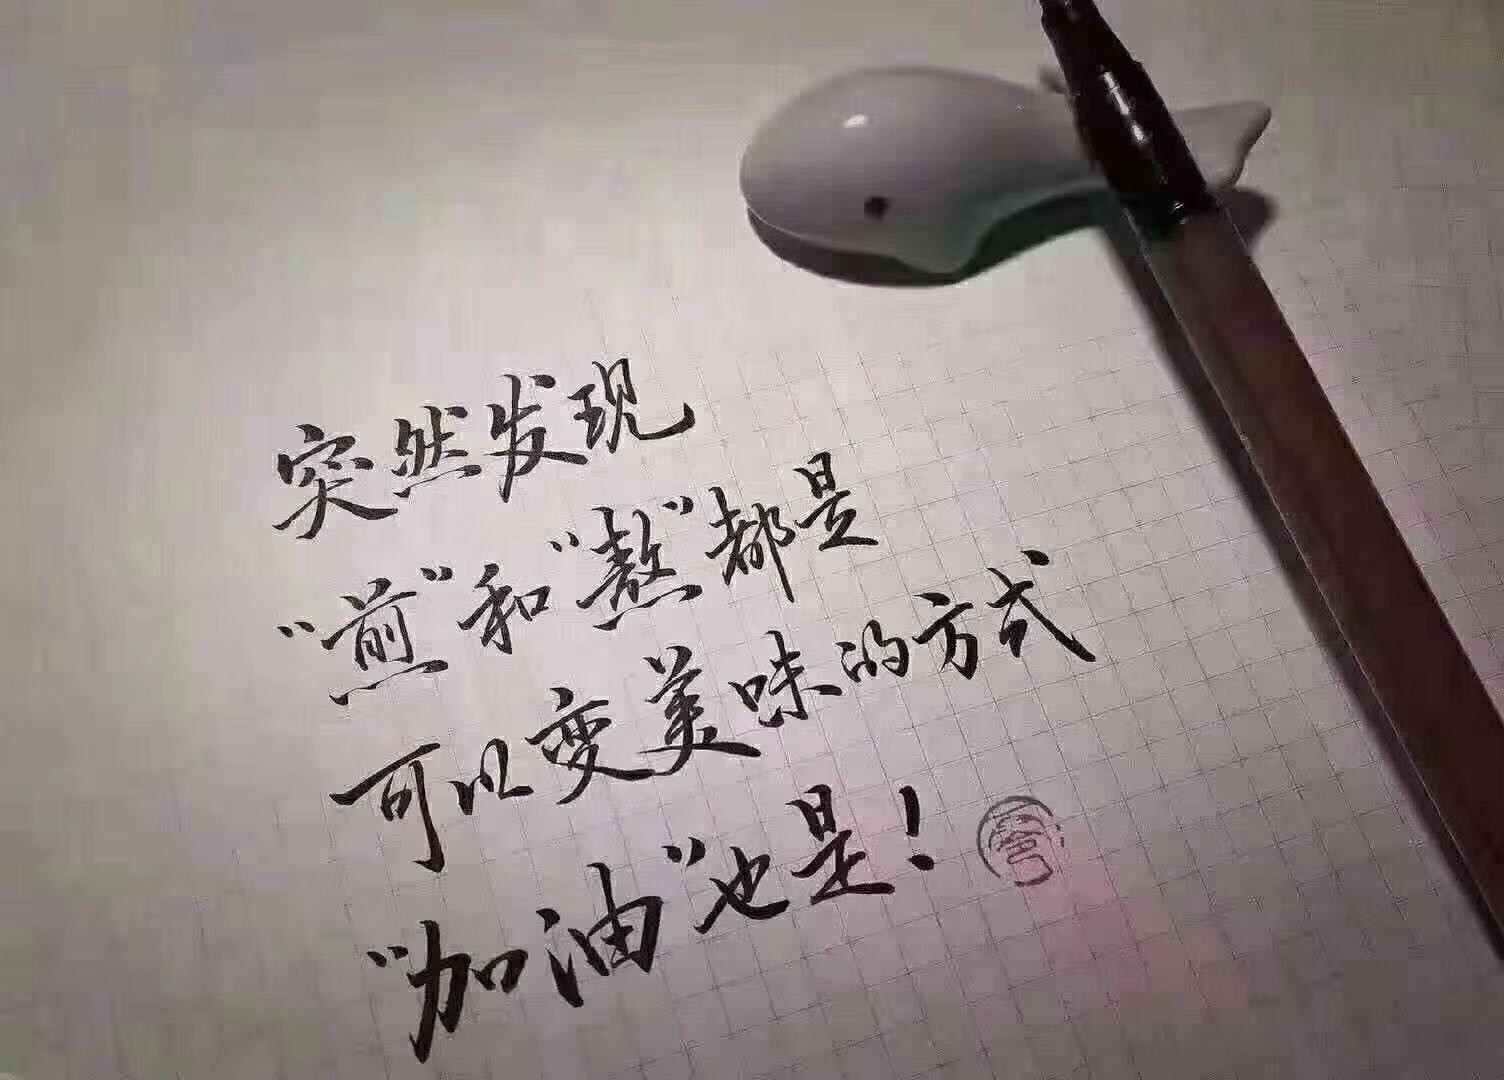 突然发现
“煎”和“熬”都是
可以变美味的方式
“加油”也是！